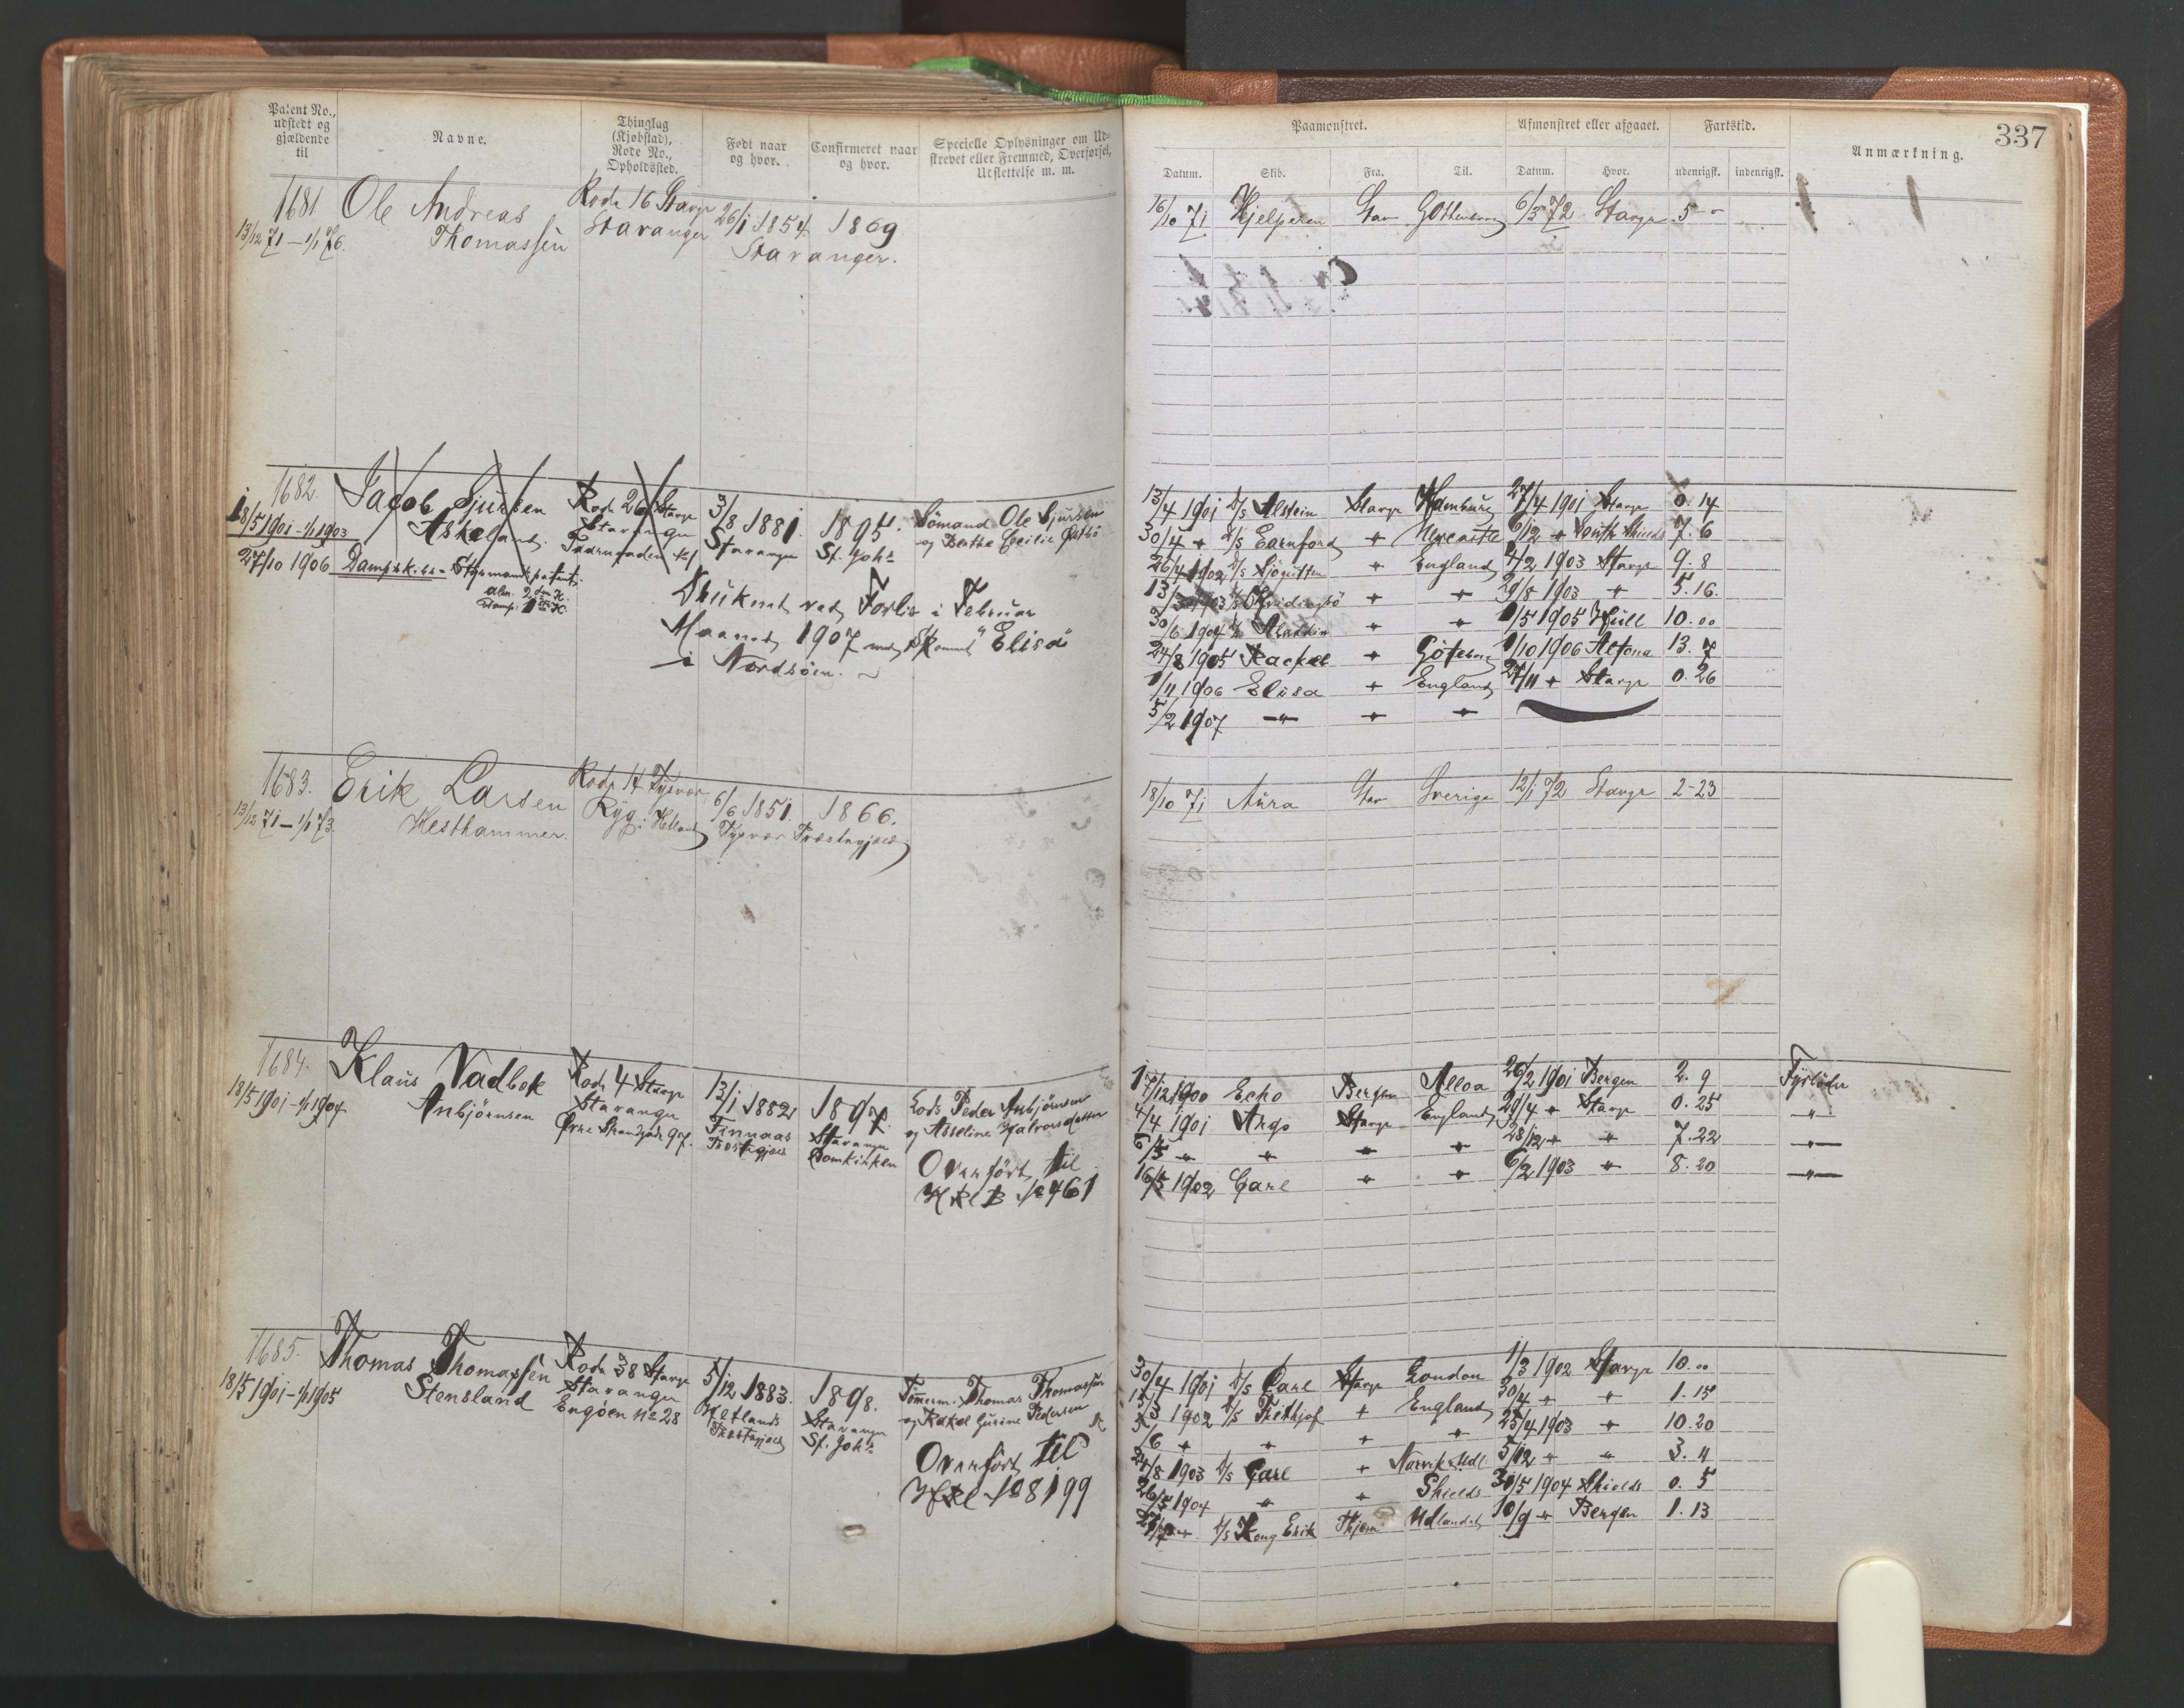 Patent No., udstedt og gjældende til
Navne.
Thinglag (Kjøbstad), Rode No., Opholdssted.
Født naar og hvor.
Confirmeret naar og hvor.
Specielle Oplysninger om Udskrevet eller Fremmed, Overførsel, Udslettelse m. m.
Paamønstret.
Afmønstret eller afgaaet.
Fartstid.
Anmærkning.
337
Datum.
Skib.
Fra.
Til.
Datum.
Hvor.
udenrigsk.
indenrigsk.
1681
13/12 71 – 1/1 76.
Ole Andreas
Thomassen
Rode 16 Stavgr
Stavanger
26/1 1854. 1869
Stavanger.
16/10 71 Hjelperen Stav Gøttenborg 6/3 72 Stavgr 5 –
1682.
18/5 1901 – 1/1 1903
27/10 1906 Dampsk.ss – Styrmandspatent
alm. 2den Kl.
Damp. 1ste Kl.
Jacob Sjursen
Askeland.
Rode 26 Stavgr
Stavanger
3/8 1881.
Stavanger
1895.
St. Johs
Sømand Ole Sjursen
og Berthe Cecilie
Druknet ved Forlis i Februar
Maaned 1907 med Skonnert "Elisa"
i Nordsøen.
13/4 1901 D/S Alstein Stavgr Hamburg 27/4 1901 Stavgr 0. 14
30/4 " D/S Earnford " Newcastle 6/12 " South Shields 7. 6
26/4 1902 D/S Sjøgutten " England 4/2 1903 Stavgr 9. 8
" " 29/8 1903 " 5. 16.
30/6 1904 D/S Aladdin " " 1/5 1905 Hull 10. 00
24/8 1905 Rachel " Göteborg 1/10 1906 Altona 13. 7
1/11 1906 Elisa " England 27/11 " Stavgr 0. 26
5/2 1907 – " – " "
1683.
13/12 71 – 1/1 73.
Erik Larsen
Hesthammer.
Rode 14 Tysvær
Ryg. Hetland
6/6 1851. 1866.
Tysvær Præstegjæld
18/10 71 Aura Stav Sverige 12/1 72 Stavgr 2 – 23
1684.
18/5 1901 – 1/1 1904
Klaus Vadbek
Anbjørnsen
Rode 4 Stavgr
Stavanger
Øvre Strandgade 97.
13/1 1882
Finnaas
Præstegjæld
1897.
Stavanger
Domkirken
Lods Peder Anbjørnsen
og Asseline Halvorsdatter
Overført til
HRl B No 461
17/12 1900 Echo Bergen Alloa 26/2 1901 Bergen 2. 9 Fyrbøder
4/4 1901 Argo Stavgr England 29/4 " Stavgr 0. 25 – " –
6/5 " " " " 28/12 " " 7. 22 – " –
16/5 1902 Carl " " 6/2 1903 " 8. 20 – " –
1685.
18/5 1901 – 1/1 1905
Thomas Thomassen
Stensland
Rode 38 Stavgr
Stavanger
Engøen No 28
5/12 1883.
Hetlands
Præstegjæld
1898.
Stavanger
St. Johs
Tømmerm. Thomas Thomassen
og Rakel Gurine Pedersen
Overført til
HRl No 8199
30/4 1901 D/S Carl Stavgr London 1/3 1902 Stavgr 10. 00
15/3 1902 D/S Frithjof " England 30/4 " " 1. 15
5/6 " " " " 25/4 1903 " 10. 20
24/8 1903 D/S Carl " Narvik & Udl 5/12 " " 3. 11
26/5 1904 " " Shields 30/5 1904 Shields 0. 5
D/S Kong Erik Udlandet 10/9 " Bergen 1. 13